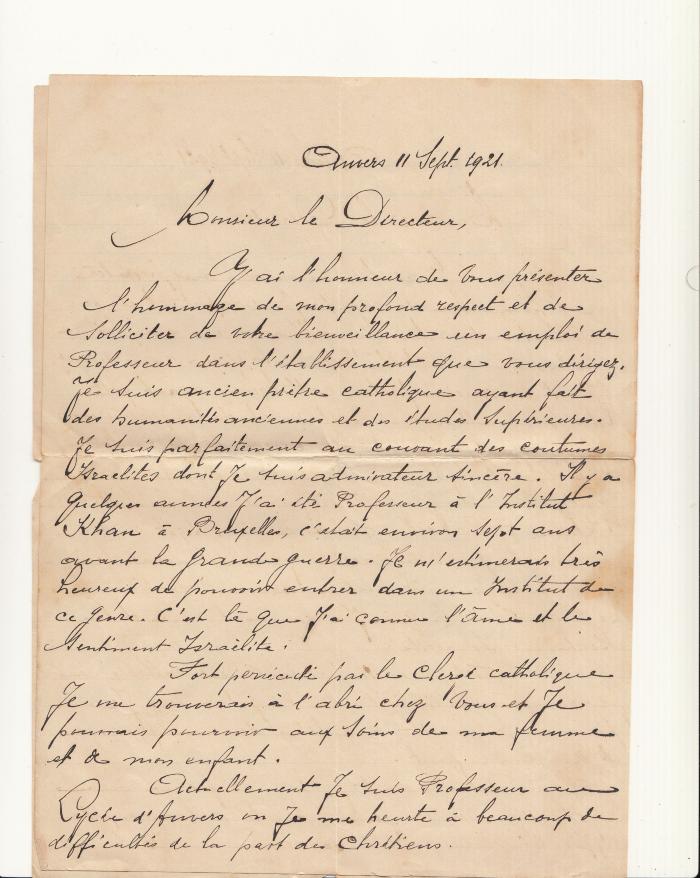 Anvers 11 Sept. 1921.
Monsieur le Directeur,
J'ai l'honneur de vous présenter
l'hommage de mon profond respect et de
solliciter de votre bienveillance un emploi de
Professeur dans l'établissement que vous dirigez.
Je suis ancien prêtre catholique ayant fait
des humanités anciennes et des études supérieures.
Je suis parfaitement au courant des coutumes
Israelites dont Je suis admirateur sincère. Il y a
quelques années J'ai été Professeur à l'Institut
Khan à Bruxelles, c'était environ sept ans
avant la grande guerre. Je m'estimerais très
heureux de pouvoir entrer dans un Institut de
ce genre. C'est là que J'ai connu l'âme et le
sentiment Israëlite.
Fort persécuté par le clergé catholique
Je me trouverais à l'abri chez Vous et Je
pourrais pourvoir aux soins de ma femme
et de mon enfant.
Actuellement Je suis Professeur au
Lycée d'Anvers où Je me heurte à beaucoup de
difficultés de la part des Chrétiens.